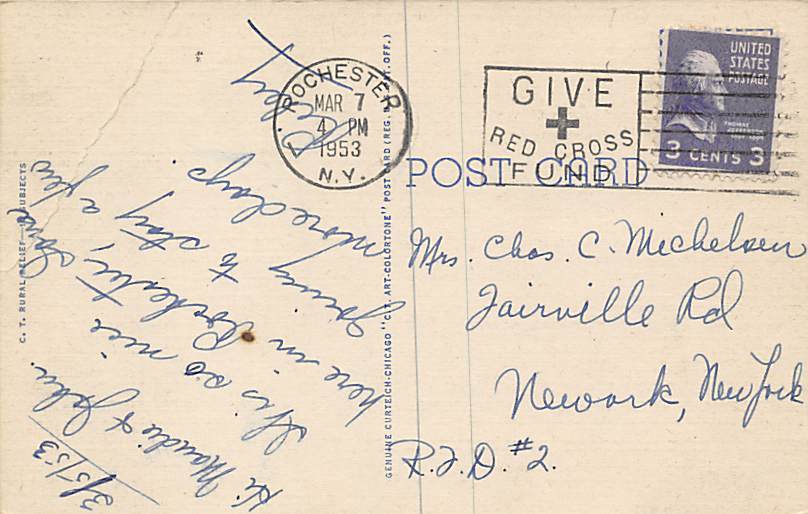 3/5/53
Hi Maudie & John.
It is so nice
here in Rochester,
Going to stay a few
more days.
Love
GENUINE CURTEICH-CHICAGO "C.T. ART-COLORTONE" POST CARD (REG. U.S. PAT. OFF.)
C. T. RURAL RELIEF SUBJECTS
ROCHESTER
MAR 7
4 PM
1953
N.Y.
GIVE
RED CROSS
FUND
UNITED
STATES
POSTAGE
THOMAS
JEFFERSON
3 CENTS 3
POST CARD
Mrs. Chas. C. Michelsen
Fairville Rd
Newark, New York
R.F.D. #2.